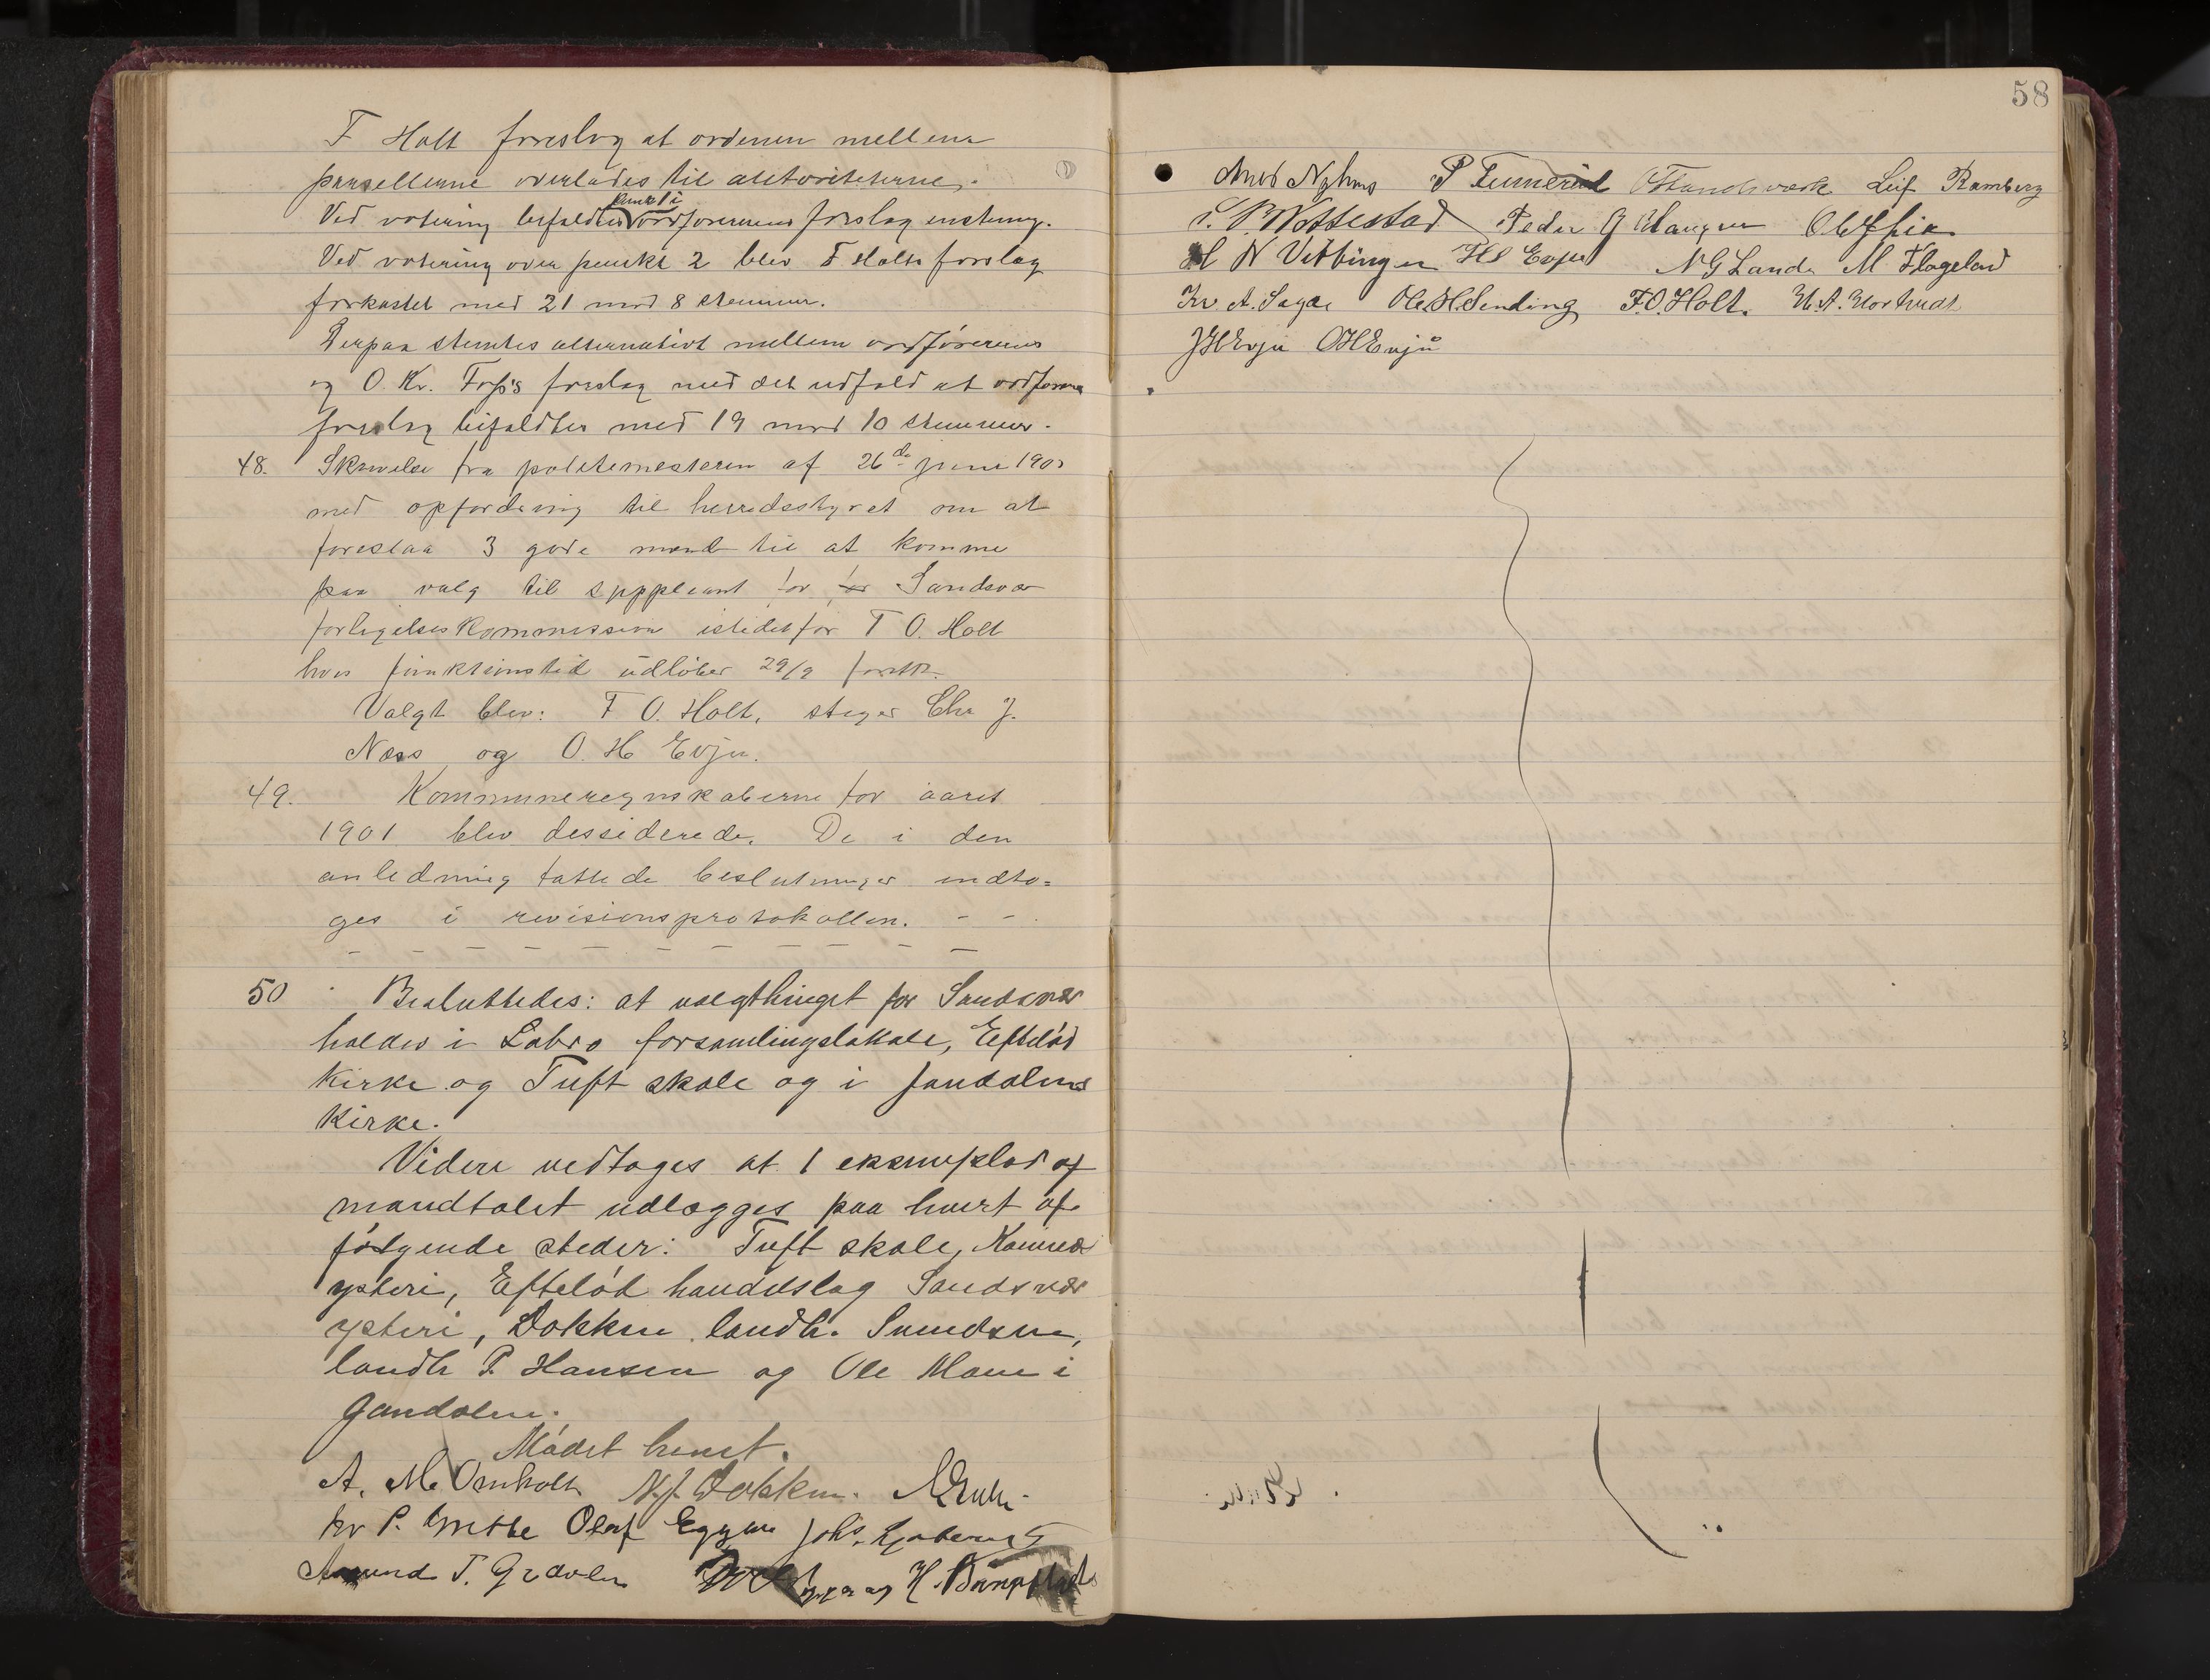 F Holt foreslog at ordenen mellem
parsellerne overlades til autoriteterne.
Ved votering bifaldtes punkt i ordførerens forslag enstemg.
Ved votering over punkt 2 blev F Holts forslag
forkastet med 21 mod 8 stemmer.
Derpaa stemtes alternativt mellem ordførerens
og O. Kr. Foss's forslag med det udfald at ordførers
forslag bifaldtes med 19 mod 10 stemmer.
48. Skrivelse fra politimesteren af 26de juni
med opfordring til herredsstyret om at
foreslaa 3 gode mænd til at komme
paa valg til supppleant for for Sandsvær
forligelseskommission istedetfor F O. Holt
hvis funktionstid udløber 29/9 førstk.
Valgt blev: F O. Holt, steger Chr J.
Næss og O. H Evju.
49. Kommuneregnskaberne for aaret
1901 blev dessiderede. De i den
anledning fattede beslutninger indto=
ges i revisionsprotokollen. - -
50 Besluttedes: at valgthinget for Sandsvær
holdes i Labro forsamlingslokale, Efteløt
kirke og Tuft skole og i Jondalens
kirke.
Videre vedtoges at 1 eksemplar af
mandtalet udlægges paa hvert af
følgende steder: Tuft skole, Komnes
ysteri, Efteløt handelslag Sandsvær
ysteri, Dokken landh. Svendsen,
landh P. Hansen og Ole Moen i
Jondalen.
Mødet hævet.
A. M. Ornholt N. J. Dokken.
Kr P. Grette Olaf Eggum Johs.
Amund T. H.
58
Anders Nyhus P Leif Ramberg
Wottestad Peder G
H N Vittingen H S Evju N G Lande M Flageland
Kr. A. Ole H. Sending F. O. Holt. H. A.
J H Evju O H Evju